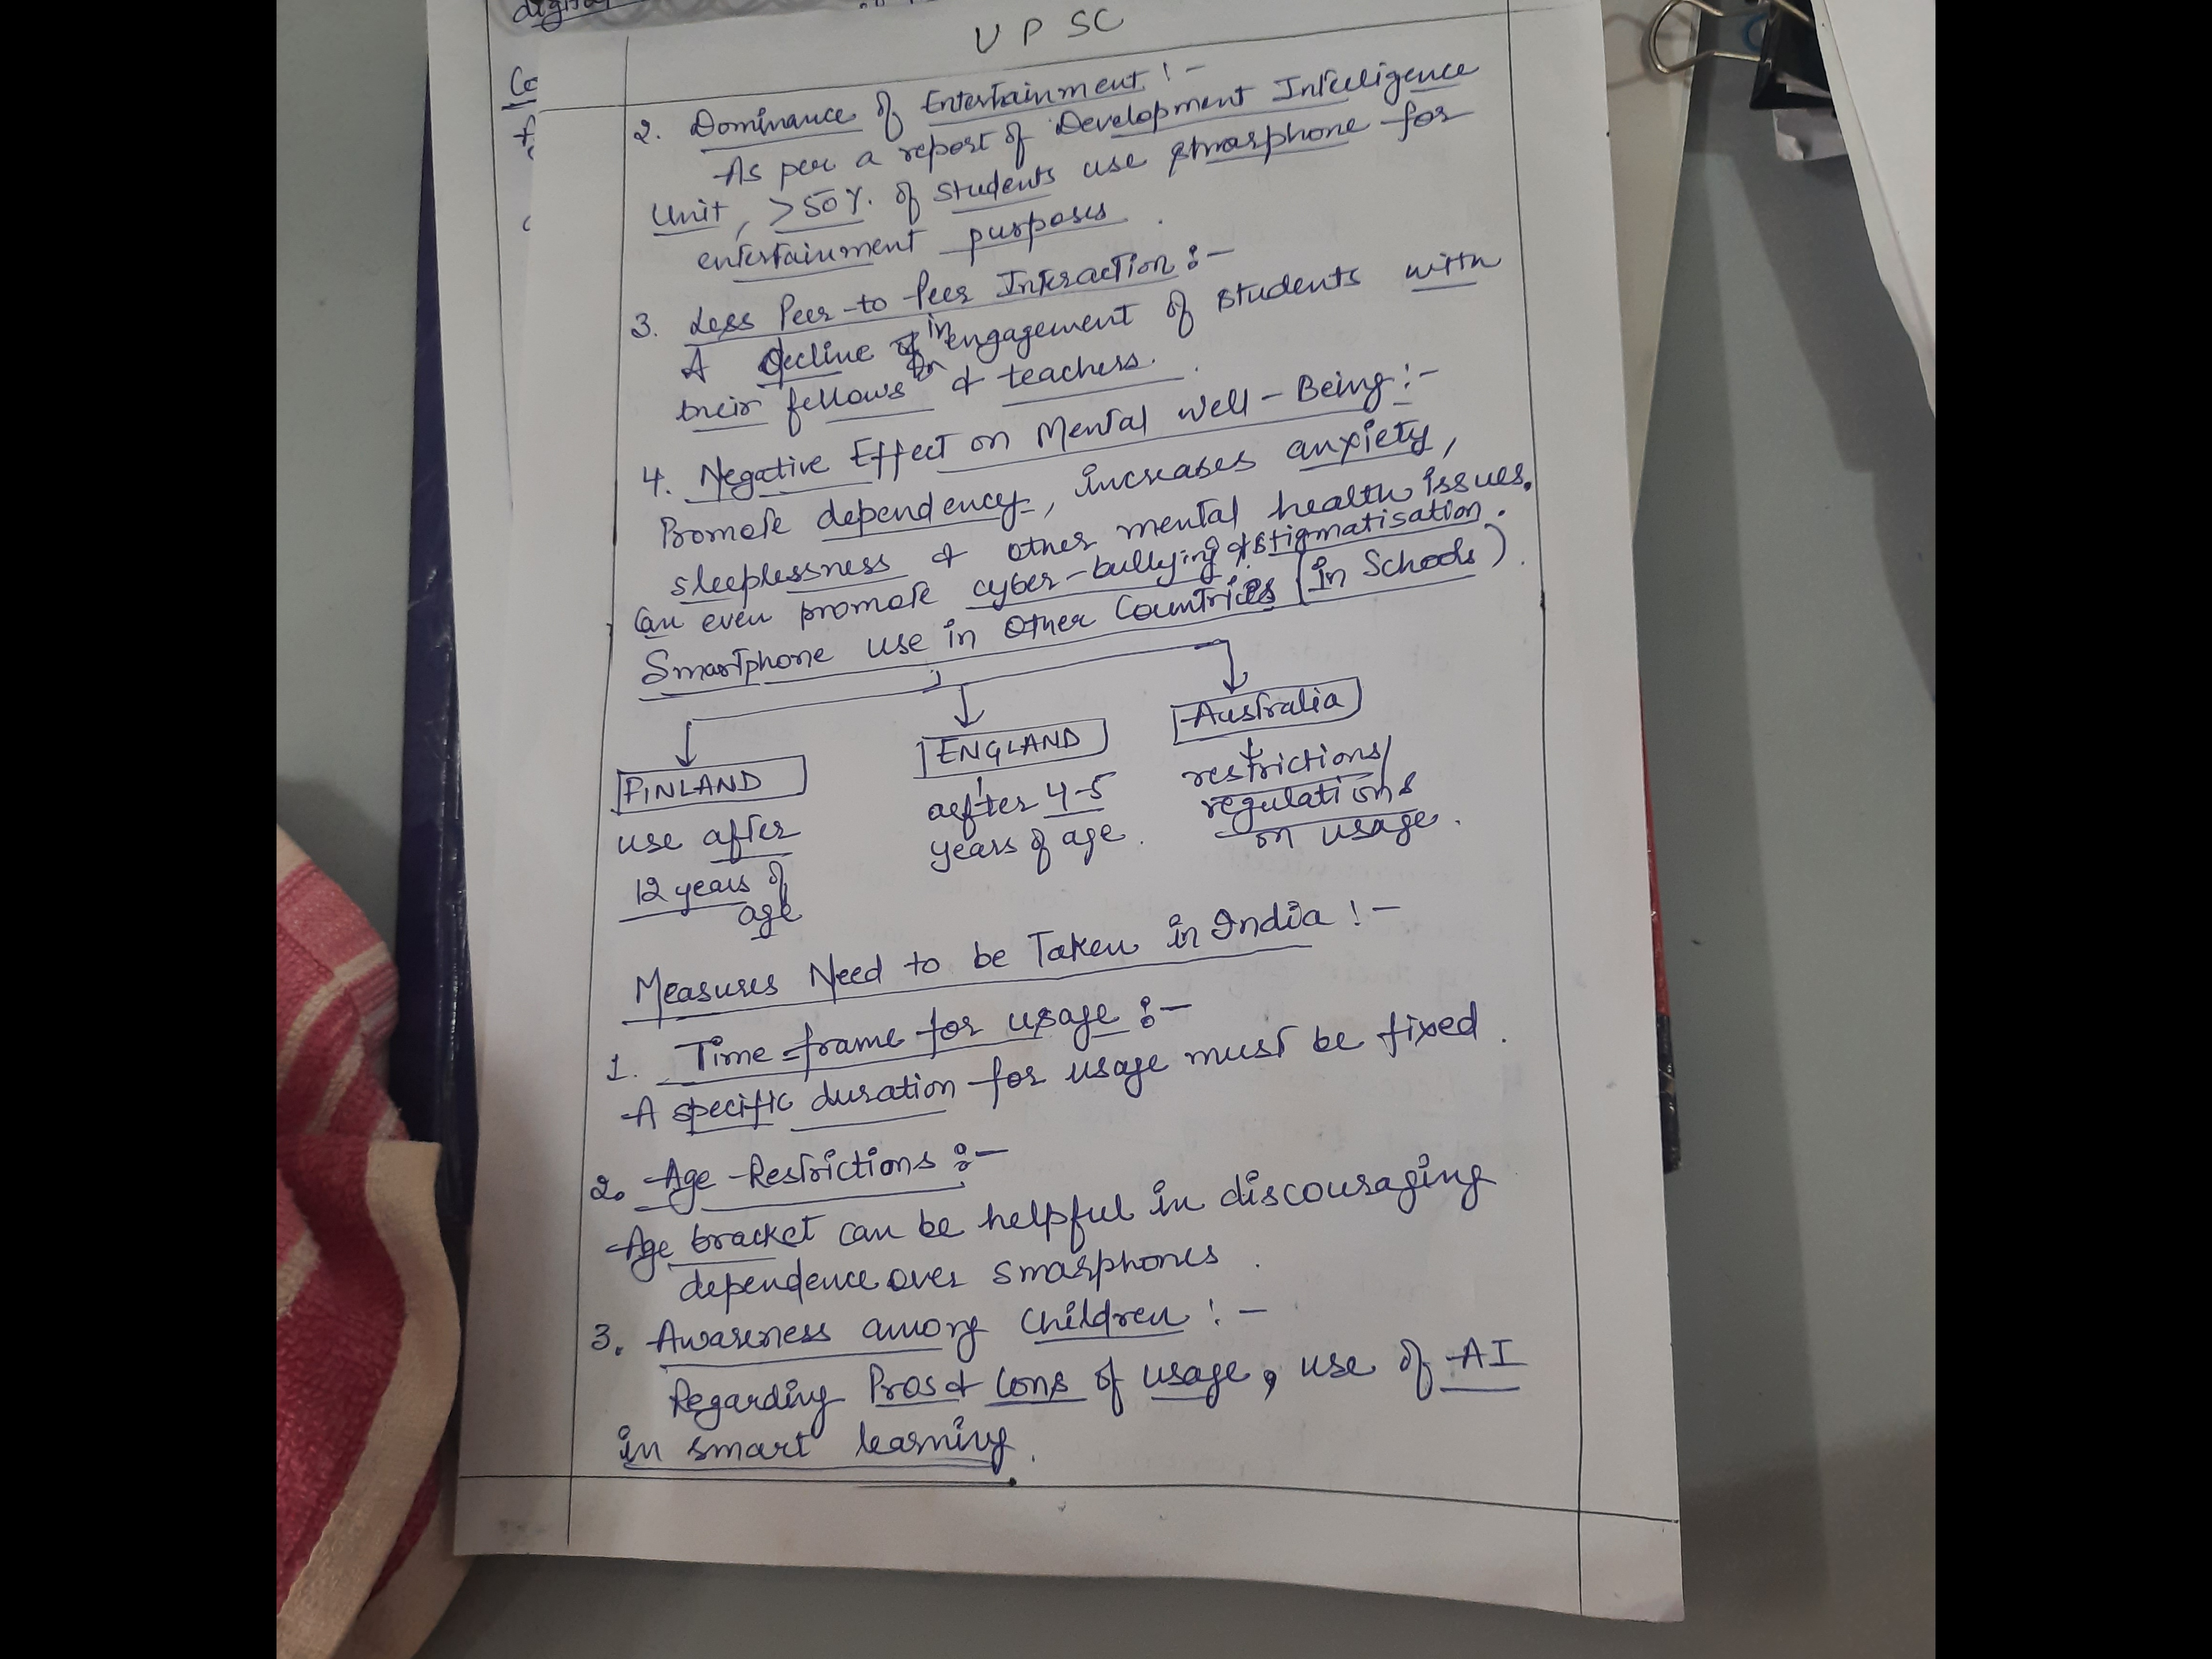 UPSC
2. Dominance of Entertainment :-
As per a report of Development Intelligence
Unit, >50% of students use smarphone for
entertainment purposes.
3. Less Peer-to Peer Interaction :-
A decline in engagement of students with
their fellows & teachers.
4. Negative Effect on Mental Well-Being :-
Promote dependency, increases anxiety,
sleeplessness & other mental health issues.
Can even promote cyber-bullying & stigmatisation.
Smartphone use in Other Countries (in Schools).
FINLAND ENGLAND Australia
use after
12 years of
age
aefter 4-5
years of age.
restrictions/
regulations
on usage.
Measures Need to be Taken in India :-
1. Time-frame for usage :-
A specific duration for usage must be fixed.
2. Age-Restrictions :-
Age bracket can be helpful in discouraging
dependence over smarphones.
3. Awareness among Children :-
Regarding Pros & Cons of usage, use of AI
in smart learning.